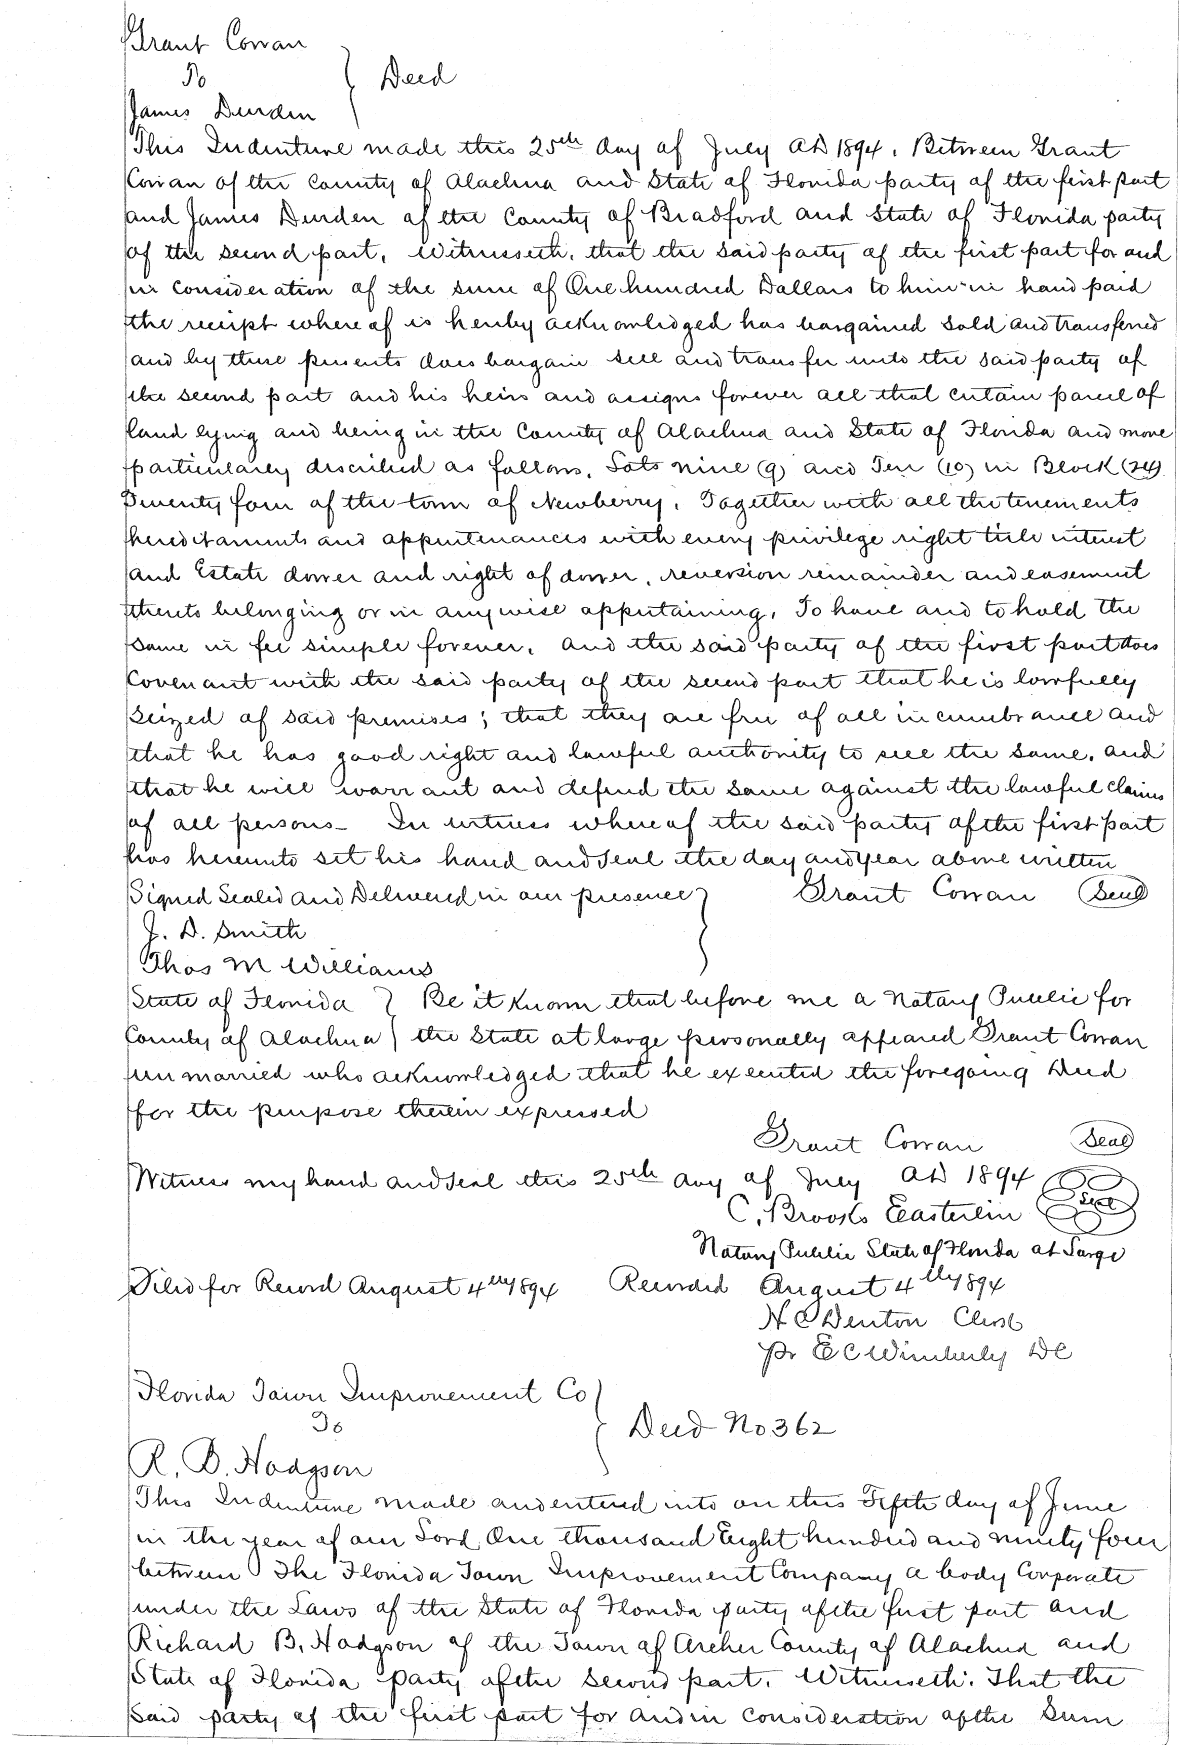 Grant Cowan
To } Deed
James Durden
This Indenture made this 25th day of July AD 1894. Between Grant
Cowan of the County of Alachua and State of Florida party of the first part
and James Durden of the County of Bradford and State of Florida party
of the second part, Witnesseth, that the said party of the first part for and
in consideration of the sum of One hundred Dollars to him in hand paid
the receipt whereof is hereby acknowledged has bargained sold and transferred
and by these presents does bargain sell and transfer unto the said party of
the second part and his heirs and assigns forever all that certain parcel of
land lying and being in the County of Alachua and State of Florida and more
particularly described as follows. Lots nine (9) and Ten (10) in Block (24)
Twenty four of the town of Newberry. Together with all the tenements
hereditaments and appurtenances with every privilege right title interest
and Estate dower and right of dower, reversion remainder and easement
thereto belonging or in anywise appertaining, To have and to hold the
same in fee simple forever. And the said party of the first part does
Covenant with the said party of the second part that he is lawfully
seized of said premises; that they are free of all incumbrance and
that he has good right and lawful authority to sell the same. and
that he will warrant and defend the same against the lawful claims
of all persons- In witness whereof the said party of the first part
has hereunto set his hand and seal the day and year above written
Signed Sealed and Delivered in our presence } Grant Cowan (Seal)
J. D. Smith
Thos M Williams
State of Florida } Be it known that before me a Notary Public for
County of Alachua } the State at large personally appeared Grant Cowan
unmarried who acknowledged that he executed the foregoing Deed
for the purpose therein expressed
Grant Cowan (Seal)
Witness my hand and seal this 25th day of July AD 1894
C. Brooks Easterlin (Seal)
Notary Public State of Florida at Large
Filed for Record August 4th 1894 Recorded August 4th 1894
H C Denton Clerk
pr E C Wimberly DC
Florida Town Improvement Co
To } Deed No 362
R. B. Hodgson
This Indenture made and entered into on this Fifth day of June
in the year of our Lord One thousand Eight hundred and ninety four
between The Florida Town Improvement Company a body Corporate
under the Laws of the State of Florida party of the first part and
Richard B. Hodgson of the Town of Archer County of Alachua and
State of Florida party of the second part. Witnesseth: That the
said party of the first part for and in consideration of the sum